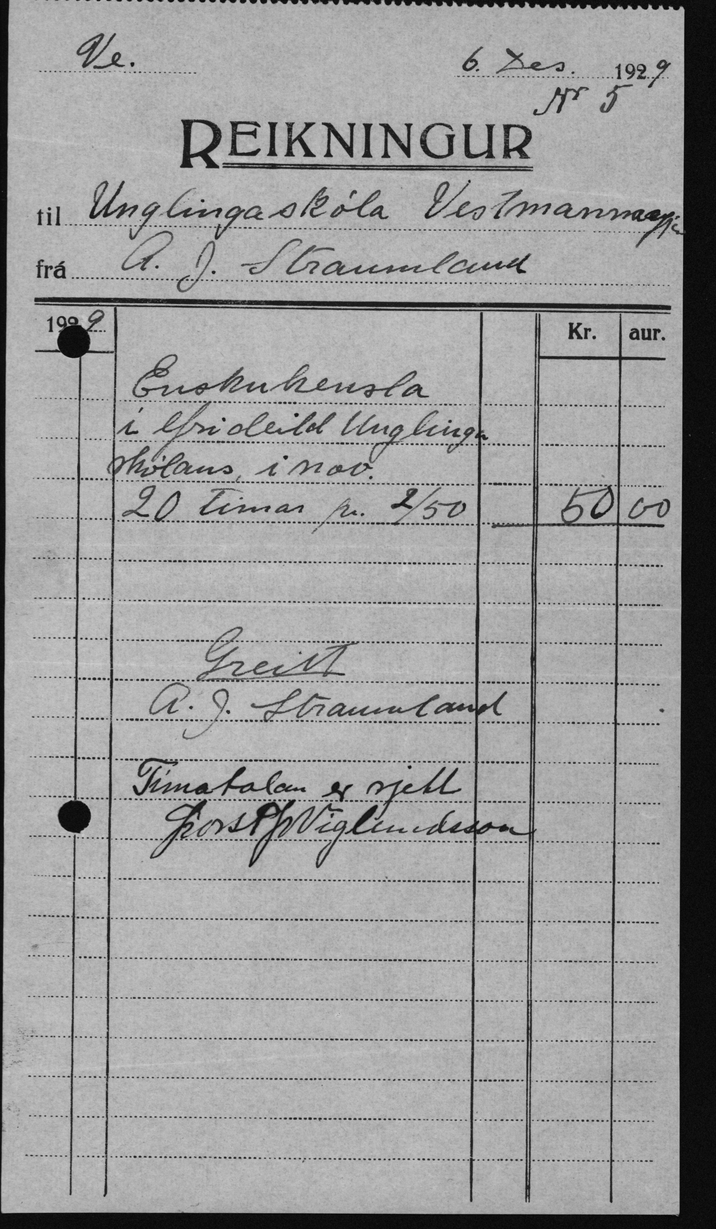 Ve. 6. Des. 1929
Nr 5
REIKNINGUR
til Unglingaskóla Vestmannaeyja
frá A. J. Straumland
1929 Kr. aur.
Enskukensla
í efrideild Unglinga
skólans, í nov.
20 tímar pr. 2/50 50 00
Greitt
A. J. Straumland
Tímatalan er rjett
Þorst Þ Víglundsson